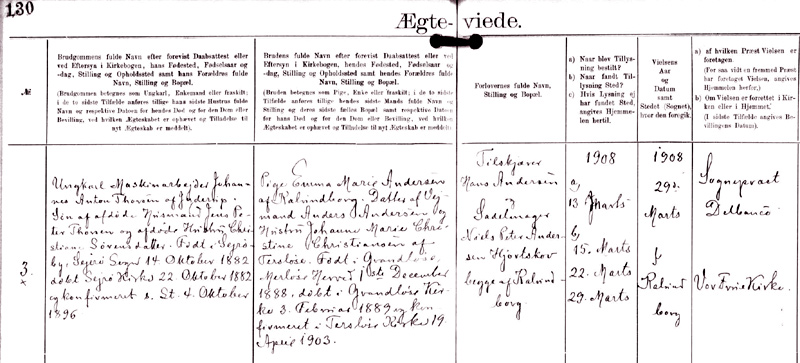 130
Ægte- viede.
№
Brudgommens fulde Navn efter forevist Daabsattest eller
ved Eftersyn i Kirkebogen, hans Fødested, Fødselsaar og
-dag, Stilling og Opholdssted samt hans Forældres fulde
Navn, Stilling og Bopæl.
(Brudgommen betegnes som Ungkarl, Enkemand eller fraskilt;
i de to sidste Tilfælde anføres tillige hans sidste Hustrus fulde
Navn og respektive Datoen for hendes Død og for den Dom eller
Bevilling, ved hvilken Ægteskabet er ophævet og Tilladelse til
nyt Ægteskab er meddelt).
Brudens fulde Navn efter forevist Daabsattest eller ved
Eftersyn i Kirkebogen, hendes Fødested, Fødselsaar og
-dag, Stilling og Opholdssted samt hendes Forældres fulde
Navn, Stilling og Bopæl.
(Bruden betegnes som Pige, Enke eller fraskilt; i de to sidste
Tilfælde anføres tillige hendes sidste Mands fulde Navn og
Stilling og deres sidste fælles Bopæl samt respektive Datoen
for hans Død og for den Dom eller Bevilling, ved hvilken
Ægteskabet er ophævet og Tilladelse til nyt Ægteskab er
meddelt).
Forlovernes fulde Navn,
Stilling og Bopæl.
a) Naar blev Tillys-
ning bestilt?
b) Naar fandt Til-
lysning Sted?
c) Hvis Lysning ej
har fundet Sted,
angives Hjemme-
len hertil.
Vielsens
Aar
og
Datum
samt
Stedet (Sognet),
hvor den foregik.
a) af hvilken Præst Vielsen er
foretagen.
(For saa vidt en fremmed Præst
har foretaget Vielsen, angives
Hjemmelen herfor.)
b) Om Vielsen er forrettet i Kir-
ken eller i Hjemmet.
(I sidste Tilfælde angives Be-
villingens Datum).
3.
Ungkarl Maskinarbejder Johan-
nes Anton Thorsen af Jyderup.
Søn af afdøde Husmand Jens Pe-
ter Thorsen og afdøde Hustru Chri-
stiane Sörensdatter. Født i Sejrø
by, Sejrø Sogn 14 Oktober 1882
døbt Sejrø Kirke 22 Oktober 1882
og konfirmeret s. St. 4. Oktober
1896
Pige Emma Marie Andersen
af Kalundborg. Datter af
mand Anders Andersen og
Hustru Johanne Marie Chri-
stine Christiansen af
Tersløse. Født i Grandløse,
Merløse Herred 1ste December
1888, døbt i Grandløse Kir-
ke 3. Februar 1889 og kon
firmeret i Tersløse Kirke 19
April 1903.
Tilskjærer
Hans Andersen
og
Sadelmager
Niels Peter Ander-
sen Hjortskov
begge af Kalund-
borg
1908
a)
13 Marts
b)
15. Marts
22. Marts
29. Marts
1908
29.
Marts
i
Kalund
borg
Sognepræst
Delbanco
Vor Frue Kirke.